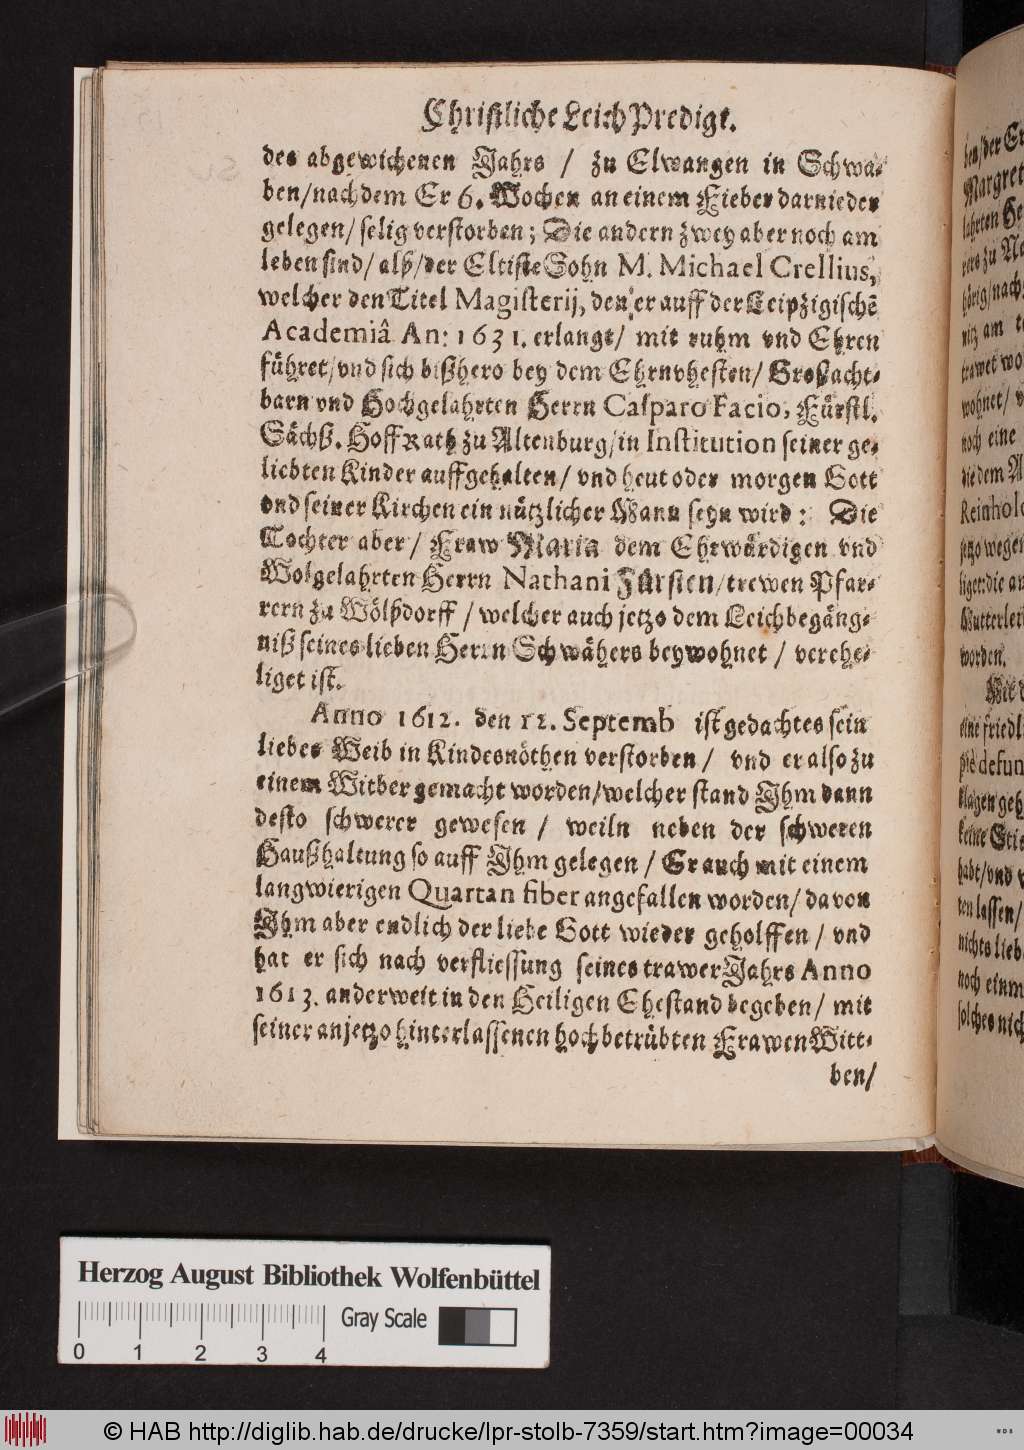 Christliche LeichPredigt.
des abgewichenen Jahrs / zu Elwangen in Schwa-
ben/nachdem Er 6. Wochen an einem Fieber darnieder
gelegen/ selig verstorben; Die andern zwey aber noch am
leben sind/ alß/der Eltiste Sohn M. Michael Crellius,
welcher den Titel Magisterij, den er auff der Leipzigischẽ
Academiâ An: 1631. erlangt/ mit ruhm vnd Ehren
führet/vnd sich bißhero bey dem Ehrnvhesten/ Großacht-
barn vnd Hochgelahrten Herrn Casparo Facio, Fürstl.
Sächß. HoffRath zu Altenburg/in Institution seiner ge-
liebten Kinder auffgehalten/ vnd heut oder morgen Gott
vnd seiner Kirchen ein nützlicher Mann seyn wird: Die
Tochter aber/ Fraw Maria dem Ehrwürdigen vnd
Wolgelahrten Herrn Nathani Fürsten/trewen Pfar-
rern zu Wölßdorff / welcher auch jetzo dem Leichbegäng-
niß seines lieben Herrn Schwähers beywohnet / verehe-
liget ist.
Anno 1612. den 12. Septemb ist gedachtes sein
liebes Weib in Kindesnöthen verstorben/ vnd er also zu
einem Witber gemacht worden/welcher stand Ihm dann
desto schwerer gewesen / weiln neben der schweren
Haußhaltung so auff Ihm gelegen / Er auch mit einem
langwierigen Quartan fiber angefallen worden/ davon
Ihm aber endlich der liebe Gott wieder geholffen / vnd
hat er sich nach verfliessung seines trawerJahrs Anno
1613. anderweit in den Heiligen Ehestand begeben/ mit
seiner anjetzo hinterlassenen hochbetrübten Frawen Witt-
ben/
ben/der Er
Margret
lahrten He
rers zu Ne
hörig/nach
nitz am
trawet wo
wohnet/ v
noch eine
die dem A
Reinhold
jetzo wegen
liget:die an
Mutterleib
worden.
Mit d
eine friedl
piè defun
klagen geh
keine Stie
habt/vnd
ten lassen/
nichts lieb
noch einm
solches nich
Herzog August Bibliothek Wolfenbüttel
Gray Scale
0 1 2 3 4
© HAB http://diglib.hab.de/drucke/lpr-stolb-7359/start.htm?image=00034